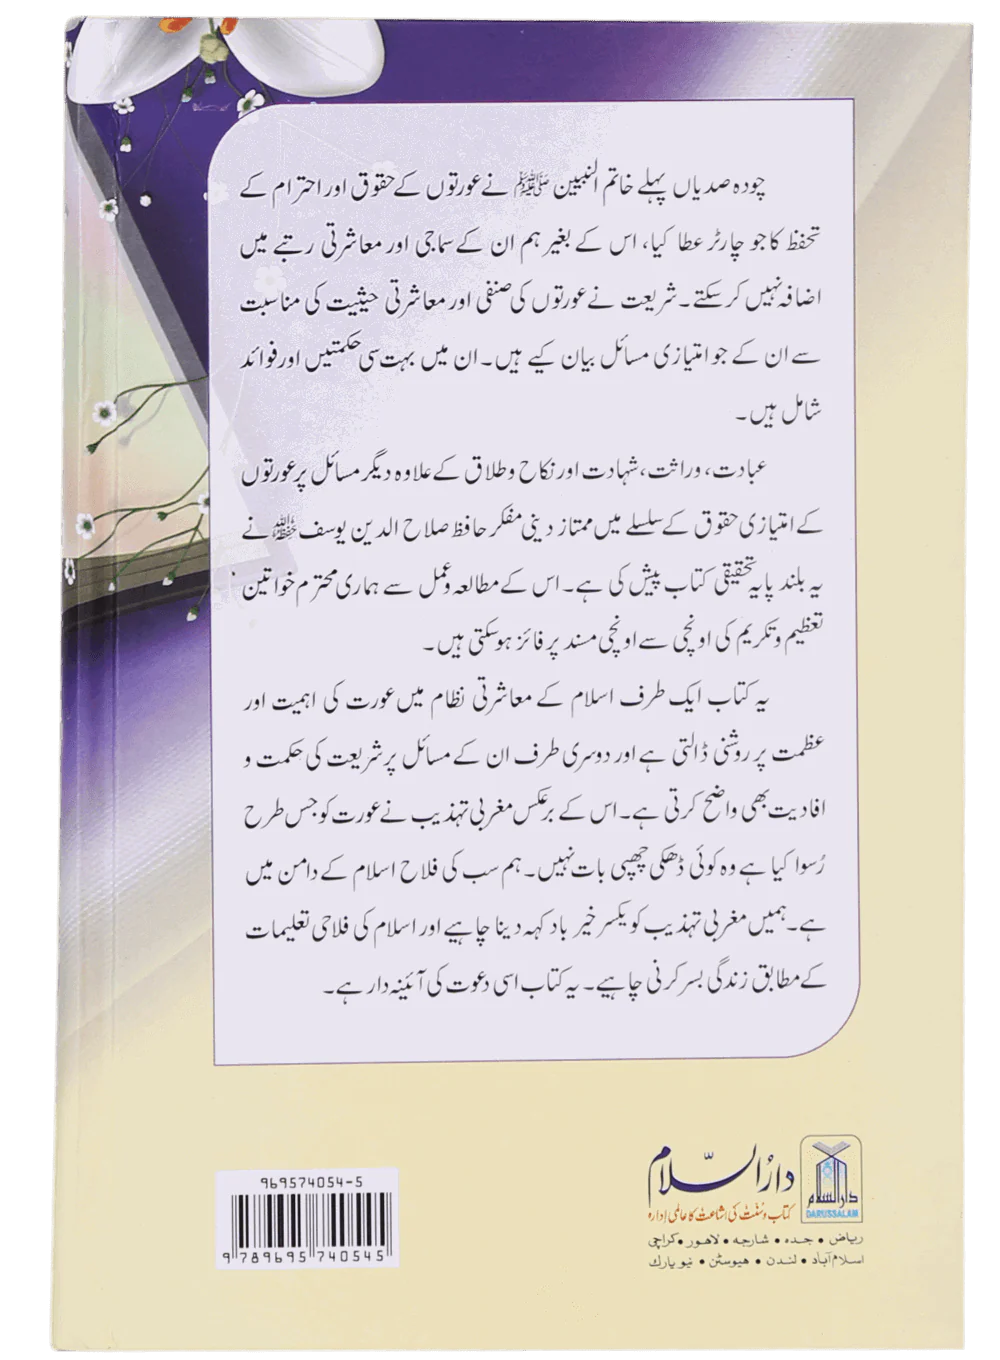 چودہ صدیاں پہلے خاتم النبیین ﷺ نے عورتوں کے حقوق اور احترام کے
تحفظ کا جو چارٹر عطا کیا، اس کے بغیر ہم ان کے سماجی اور معاشرتی رتبے میں
اضافہ نہیں کر سکتے۔ شریعت نے عورتوں کی صنفی اور معاشرتی حیثیت کی مناسبت
سے ان کے جو امتیازی مسائل بیان کیے ہیں۔ ان میں بہت سی حکمتیں اور فوائد
شامل ہیں۔
عبادت، وراثت، شہادت اور نکاح و طلاق کے علاوہ دیگر مسائل پر عورتوں
کے امتیازی حقوق کے سلسلے میں ممتاز دینی مفکر حافظ صلاح الدین یوسف حفظہ اللہ نے
یہ بلند پایہ تحقیقی کتاب پیش کی ہے۔ اس کے مطالعہ و عمل سے ہماری محترم خواتین
تعظیم و تکریم کی اونچی سے اونچی مسند پر فائز ہو سکتی ہیں۔
یہ کتاب ایک طرف اسلام کے معاشرتی نظام میں عورت کی اہمیت اور
عظمت پر روشنی ڈالتی ہے اور دوسری طرف ان کے مسائل پر شریعت کی حکمت و
افادیت بھی واضح کرتی ہے۔ اس کے برعکس مغربی تہذیب نے عورت کو جس طرح
رُسوا کیا ہے وہ کوئی ڈھکی چھپی بات نہیں۔ ہم سب کی فلاح اسلام کے دامن میں
ہے۔ ہمیں مغربی تہذیب کو یکسر خیر باد کہہ دینا چاہیے اور اسلام کی فلاحی تعلیمات
کے مطابق زندگی بسر کرنی چاہیے۔ یہ کتاب اسی دعوت کی آئینہ دار ہے۔
دارالسلام
DARUSSALAM
دارُالسّلام
کتاب و سُنّت کی اشاعت کا عالمی اِدارہ
ریاض • جدہ • شارجہ • لاہور • کراچی
اسلام آباد • لندن • ہیوسٹن • نیویارک
969574054-5
9 789695 740545